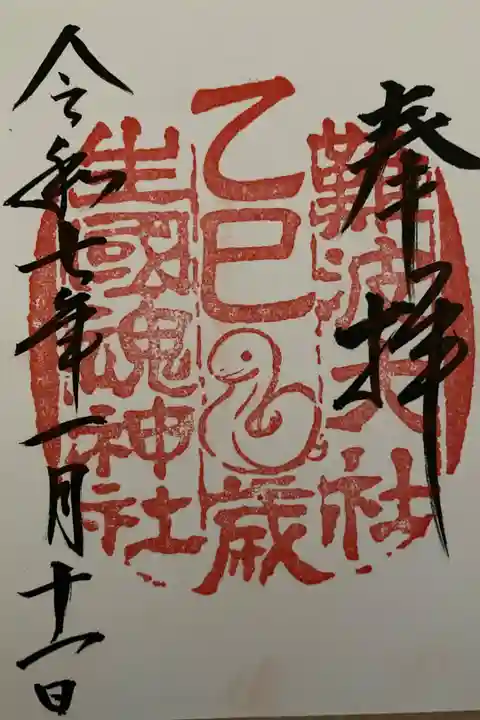 奉拝
難波大社
乙巳歳
生國魂神社
令和七年一月十一日